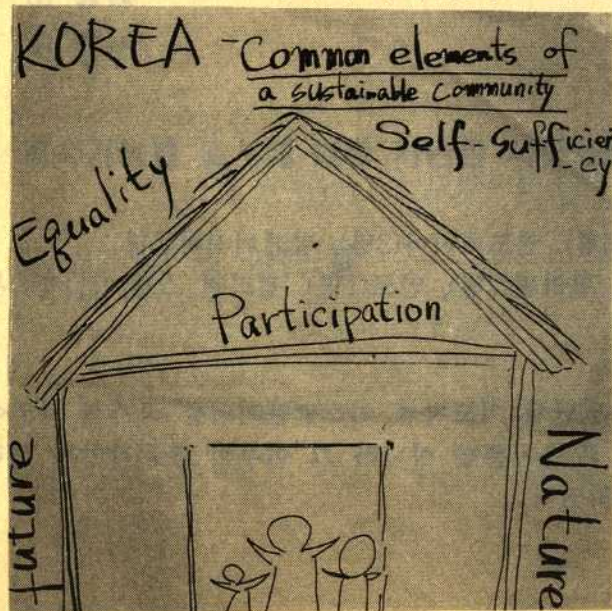 KOREA - Common elements of
a sustainable community
Self-sufficien
-cy
Equality
Participation
future
Nature